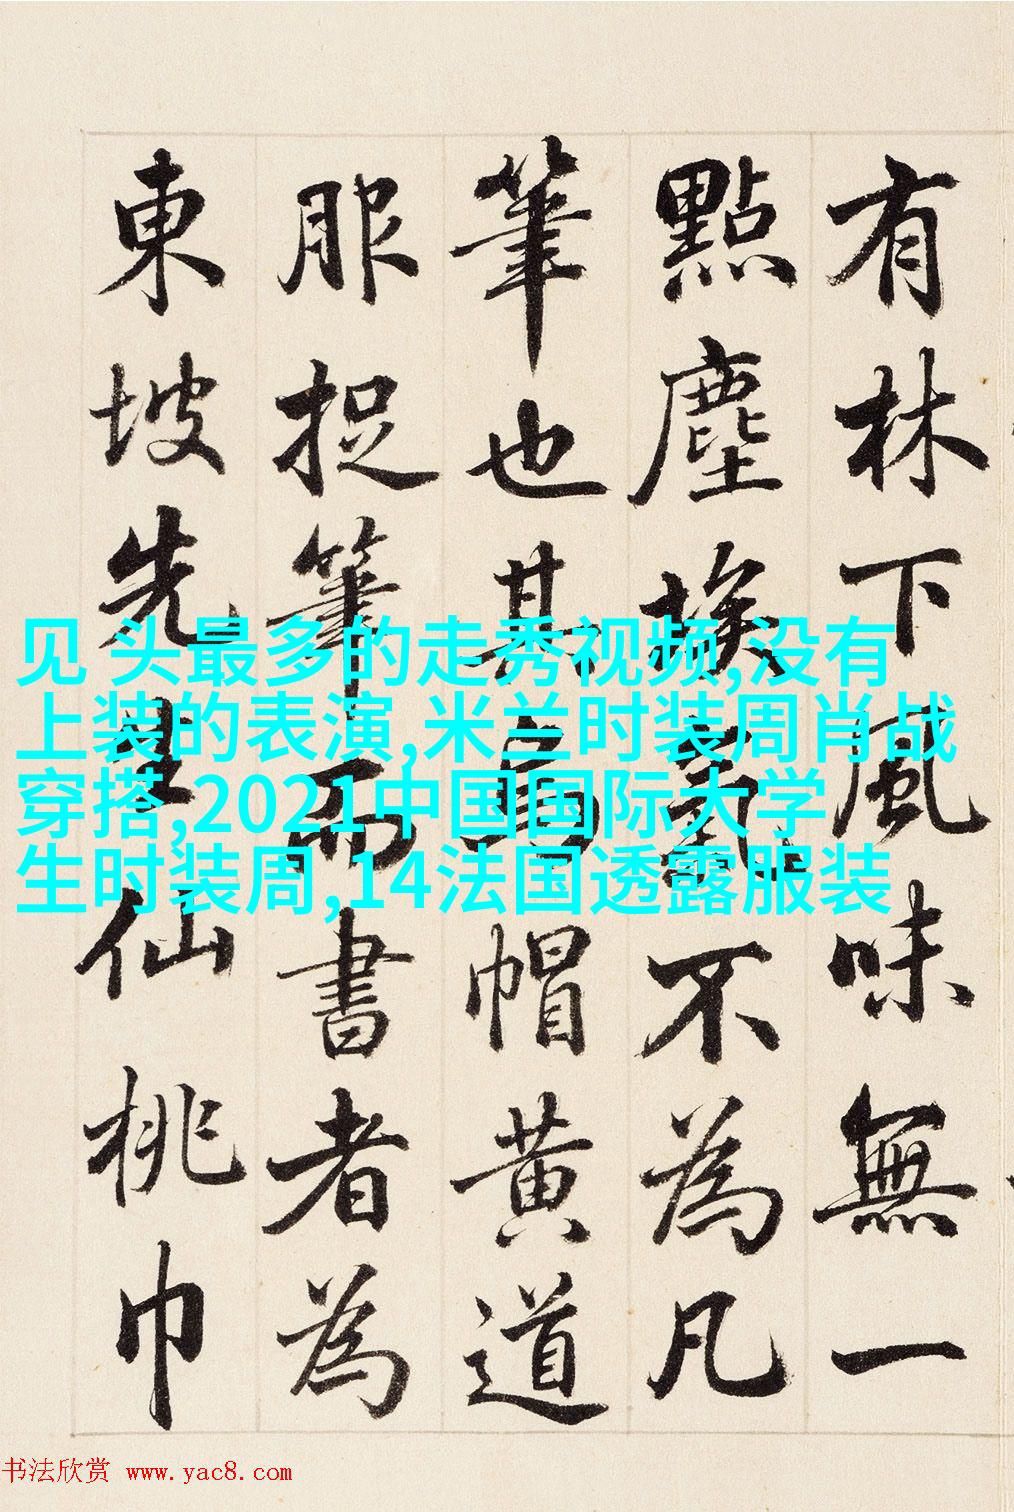 有林下風味無一
點塵埃氣不為凡
筆也其烏帽黃道
服捉筆而書者為
東坡先生仙桃巾
见 头最多的走秀视频,没有
上装的表演,米兰时装周肖战
穿搭,2021中国国际大学
生时装周,14法国透露服装
书法欣赏 www.yac8.com